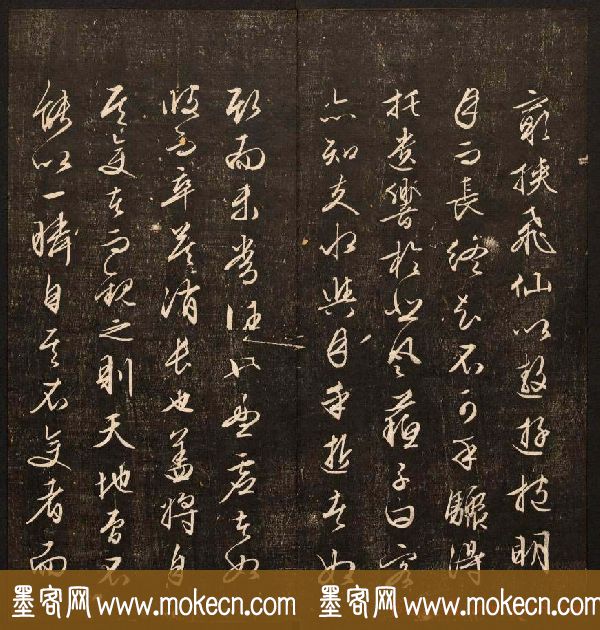 窮挾飛仙以遨遊抱明
月而長終知不可乎驟得
托遺響於悲風蘇子曰客
亦知夫水與月乎逝者如
斯而未嘗往也盈虛者如
彼而卒莫消長也蓋將自
其變者而觀之則天地曾不
能以一瞬自其不變者而
墨客网 www.mokecn.com 墨客网 www.mokecn.com